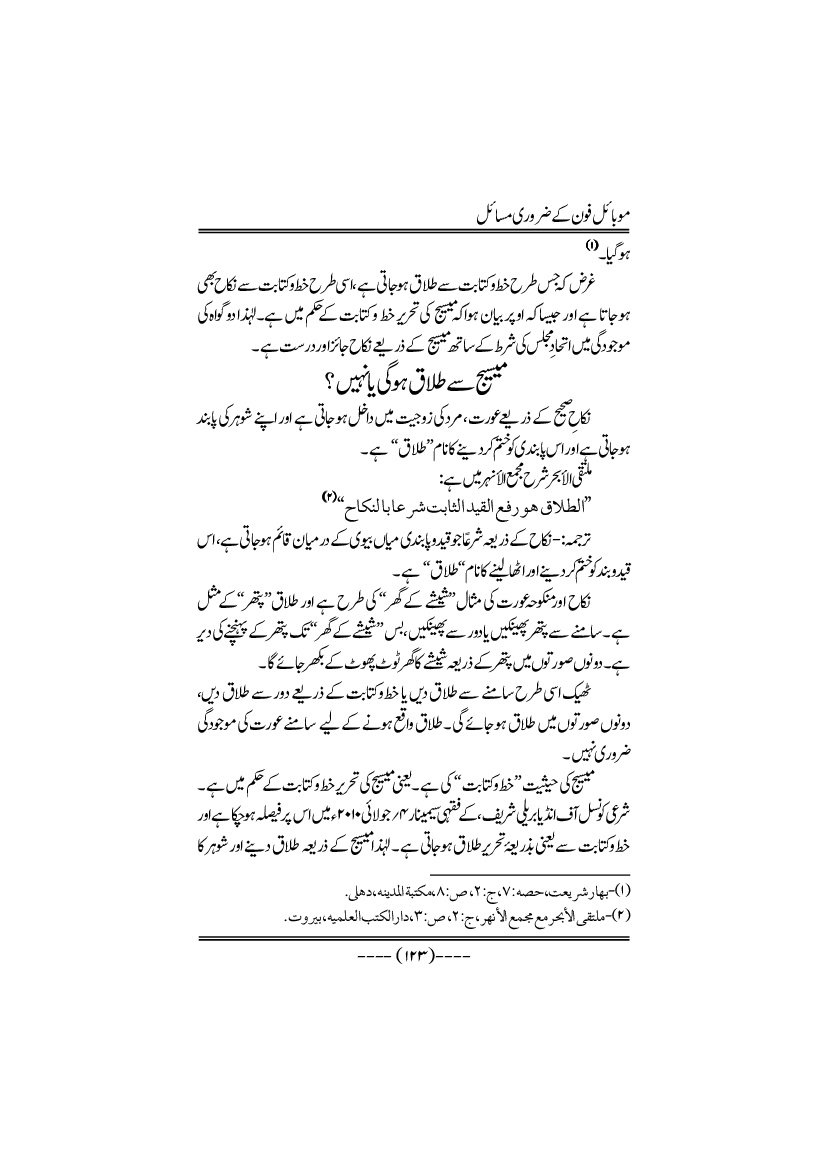 موبائل فون کے ضروری مسائل
ہوگیا۔(۱)
غرض کہ جس طرح خط و کتابت سے طلاق ہوجاتی ہے، اسی طرح خط و کتابت سے نکاح بھی
ہوجاتا ہے اور جیسا کہ اوپر بیان ہوا کہ میسیج کی تحریر خط و کتابت کے حکم میں ہے۔ لہٰذا دو گواہ کی
موجودگی میں اتحادِ مجلس کی شرط کے ساتھ میسیج کے ذریعے نکاح جائز اور درست ہے۔
میسیج سے طلاق ہوگی یا نہیں؟
نکاحِ صحیح کے ذریعے عورت، مرد کی زوجیت میں داخل ہوجاتی ہے اور اپنے شوہر کی پابند
ہوجاتی ہے اور اس پابندی کو ختم کردینے کا نام ”طلاق“ ہے۔
ملتقی الأبحر شرح مجمع الأنہر میں ہے:
”الطلاق هو رفع القيد الثابت شرعا بالنكاح“(۲)
ترجمہ:- نکاح کے ذریعہ شرعًا جو قید و پابندی میاں بیوی کے درمیان قائم ہوجاتی ہے، اس
قید و بند کو ختم کردینے اور اٹھا لینے کا نام ”طلاق“ ہے۔
نکاح اور منکوحہ عورت کی مثال ”شیشے کے گھر“ کی طرح ہے اور طلاق ”پتھر“ کے مثل
ہے۔ سامنے سے پتھر پھینکیں یا دور سے پھینکیں، بس ”شیشے کے گھر“ تک پتھر کے پہنچنے کی دیر
ہے۔ دونوں صورتوں میں پتھر کے ذریعہ شیشے کا گھر ٹوٹ پھوٹ کے بکھر جائے گا۔
ٹھیک اسی طرح سامنے سے طلاق دیں یا خط و کتابت کے ذریعے دور سے طلاق دیں،
دونوں صورتوں میں طلاق ہوجائے گی۔ طلاق واقع ہونے کے لیے سامنے عورت کی موجودگی
ضروری نہیں۔
میسیج کی حیثیت ”خط و کتابت“ کی ہے۔ یعنی میسیج کی تحریر خط و کتابت کے حکم میں ہے۔
شرعی کونسل آف انڈیا بریلی شریف، کے فقہی سیمینار ۴؍ جولائی ۲۰۱۰ء میں اس پر فیصلہ ہوچکا ہے اور
خط و کتابت سے یعنی بذریعۂ تحریر طلاق ہوجاتی ہے۔ لہٰذا میسیج کے ذریعہ طلاق دینے اور شوہر کا
(۱)-بهار شریعت، حصه:۷، ج:۲، ص:۸، مکتبة المدینه، دهلی.
(۲)-ملتقی الأبحر مع مجمع الأنهر، ج:۲، ص:۳، دار الکتب العلمیه، بیروت.
---- (۱۲۳) ----